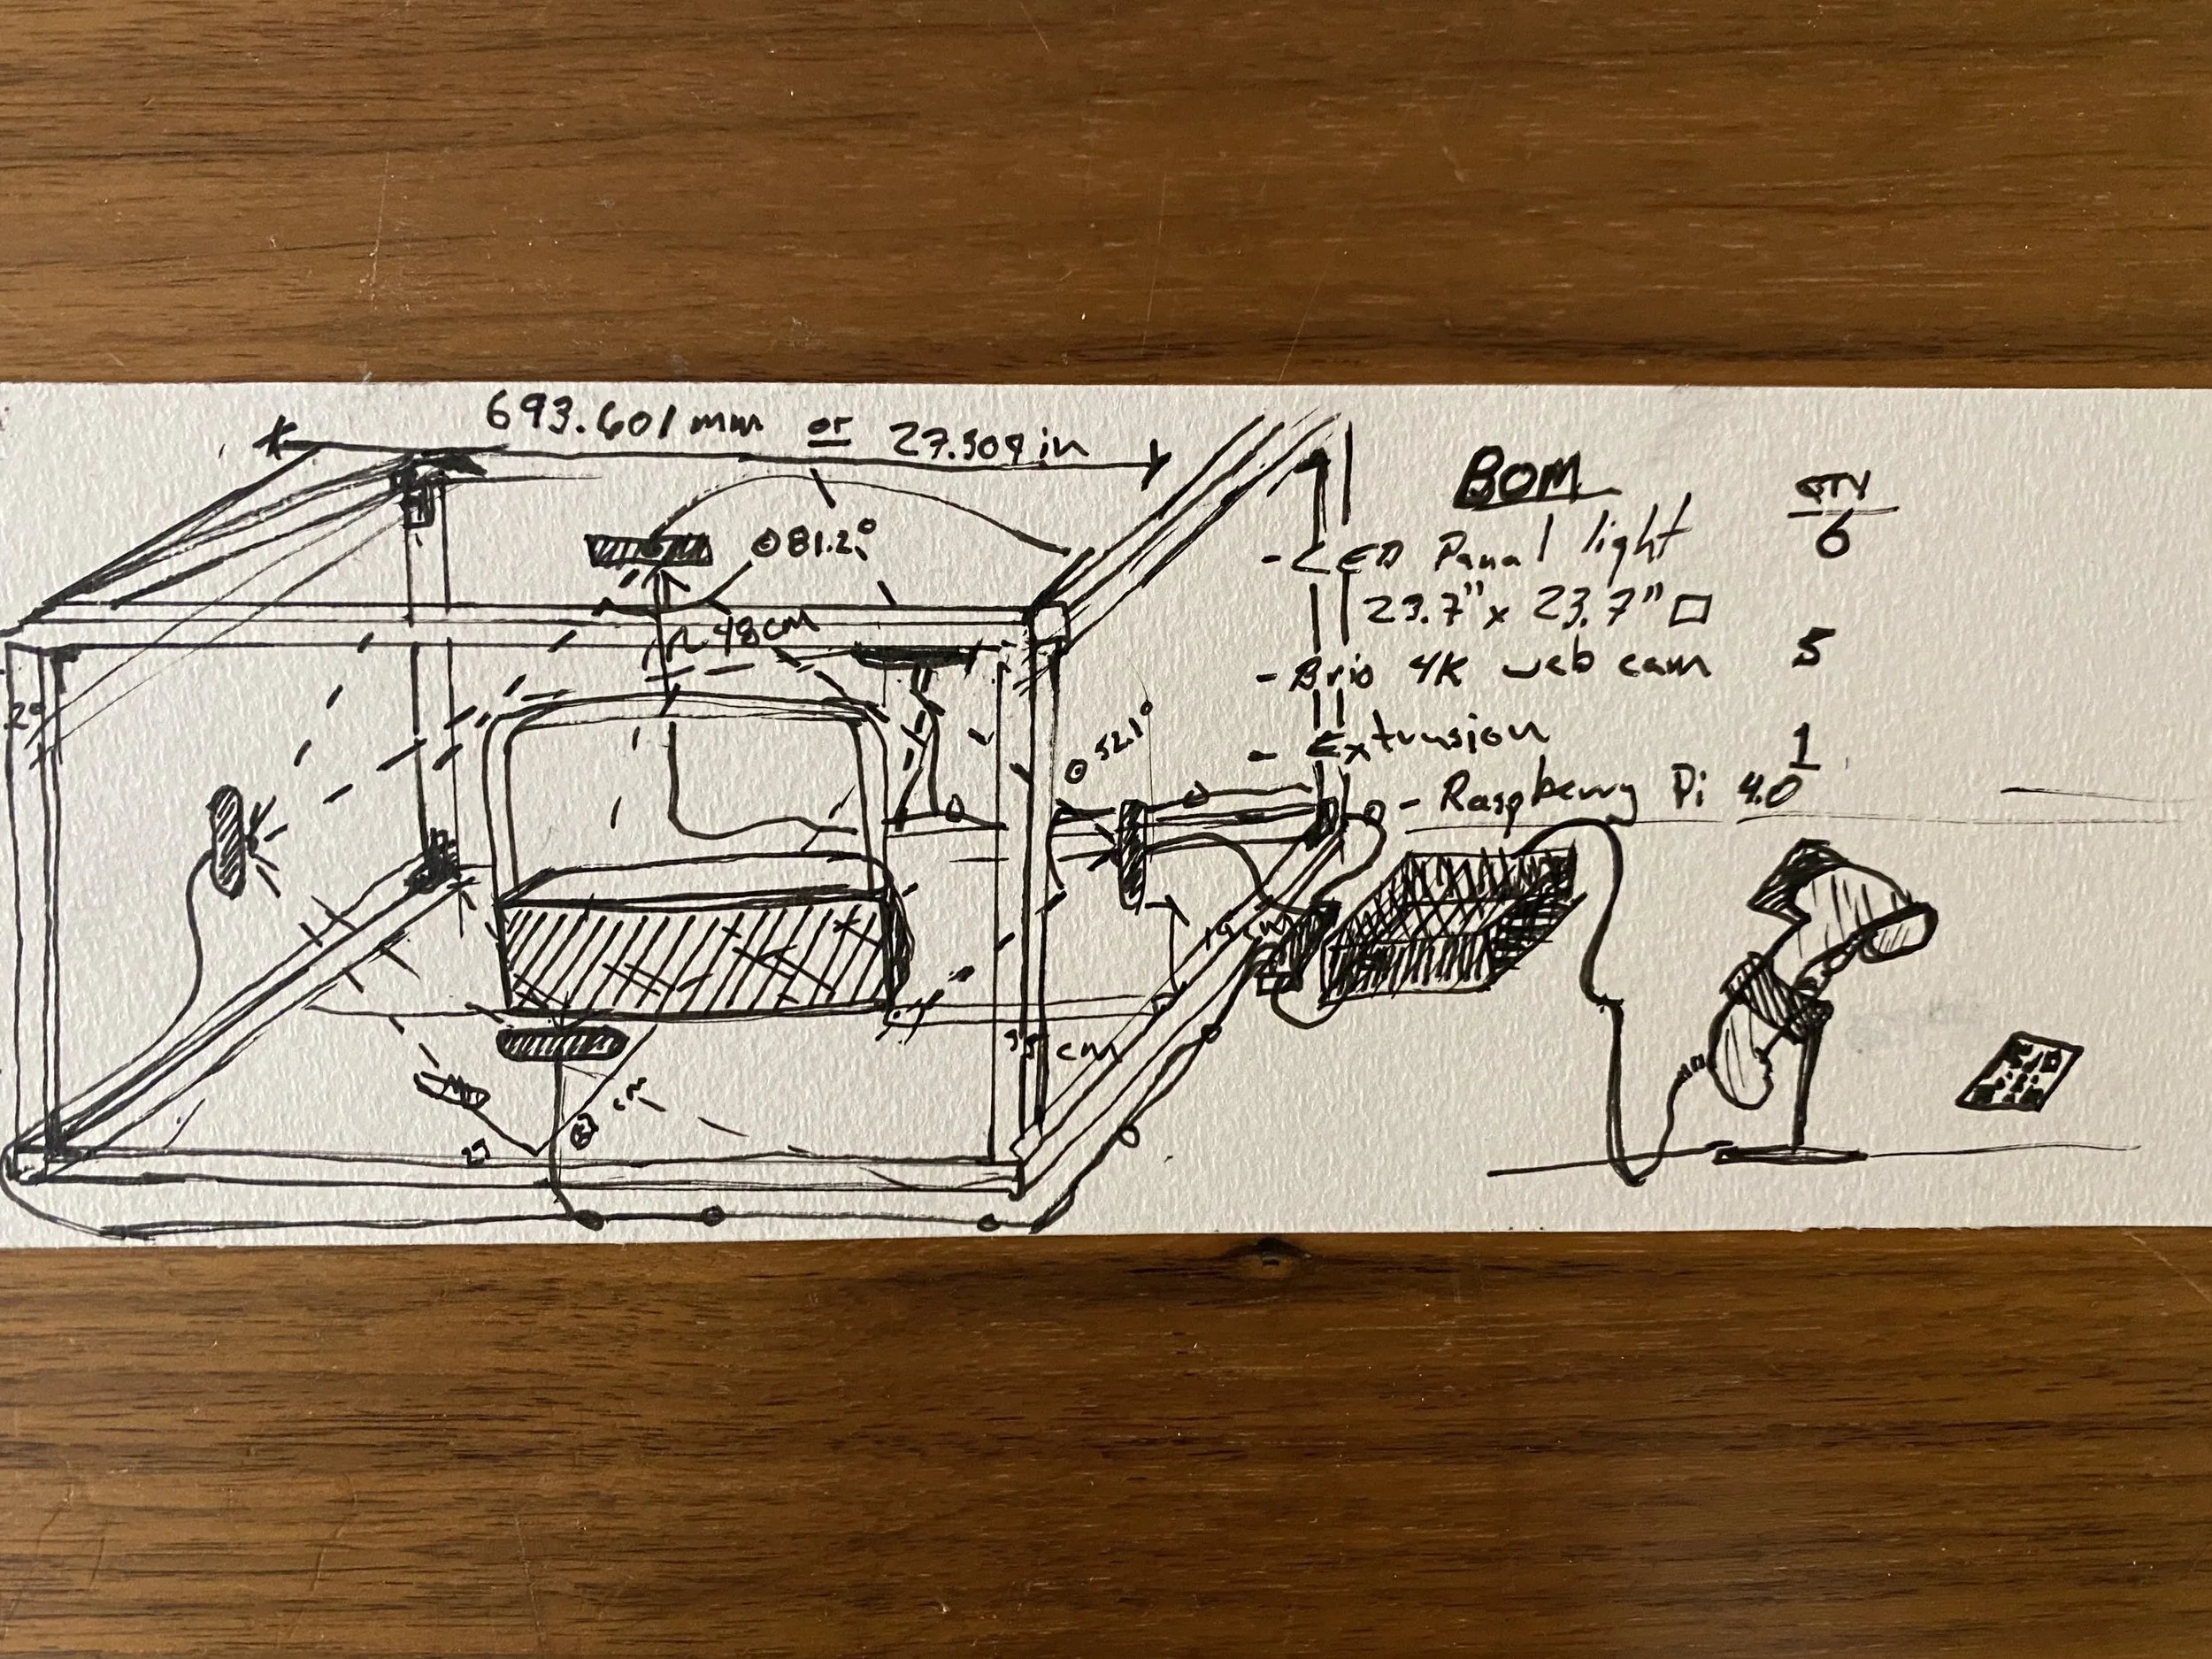 693.601 mm or 27.309 in
81.2°
48 cm
52.1°
19 cm
cm
cm
BOM QTY
- LED Panal light 6
23.7" x 23.7" □
- Brio 4K web cam 5
- Extrusion
- Raspberry Pi 4.0 1